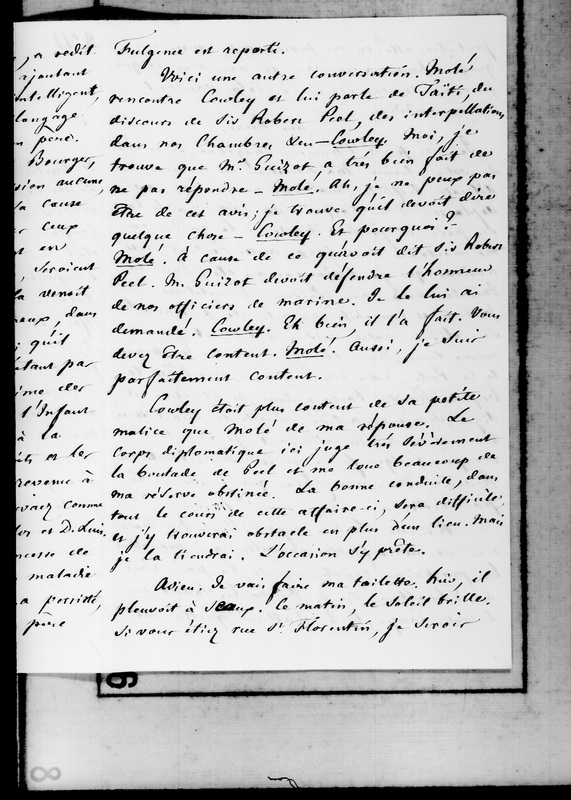 , a redit
ajoutant
intelligent,
langage
père.
Bourges,
sion aucune
la cause
ceux
en
seroient
là venoit
eaux, dans
qu'il
étant par
ime des
l'Infant
à la
et les
revenue à
comme
et D. Luis
cesse de
maladie
a persisté,
père
Fulgence est reparti.
Voici une autre conversation. Molé
rencontre Cowley et lui parle de Taïti, du
discours de Sir Robert Peel, des interpellations
dans nos Chambres &en – Cowley. Moi, je
trouve que Mr. Guizot a très bien fait de
ne pas répondre – Molé. Ah, je ne peux pas
être de cet avis; je trouve qu'il devoit dire
quelque chose – Cowley. Et pourquoi ?
Molé. à cause de ce qu'avoit dit Sir Robert
Peel. M. Guizot devoit défendre l'honneur
de nos officiers de marine. Je le lui ai
demandé. Cowley. Eh bien, il l'a fait. Vous
devez être content. Molé. Aussi, je suis
parfaitement content.
Cowley étoit plus content de sa petite
malice que Molé de ma réponse. Le
corps diplomatique ici juge très sévèrement
la boutade de Peel et me loue beaucoup de
ma réserve obstinée. La bonne conduite, dans
tout le cours de cette affaire-ci, sera difficile
et j'y trouverai obstacle en plus d'un lieu. Mais
je la tiendrai. L'occasion s'y prête.
Adieu. Je vais faire ma toilette. hier, il
pleuvoit à seaux. Ce matin, le soleil brille.
Si vous étiez rue St. Florentin, je serois
8